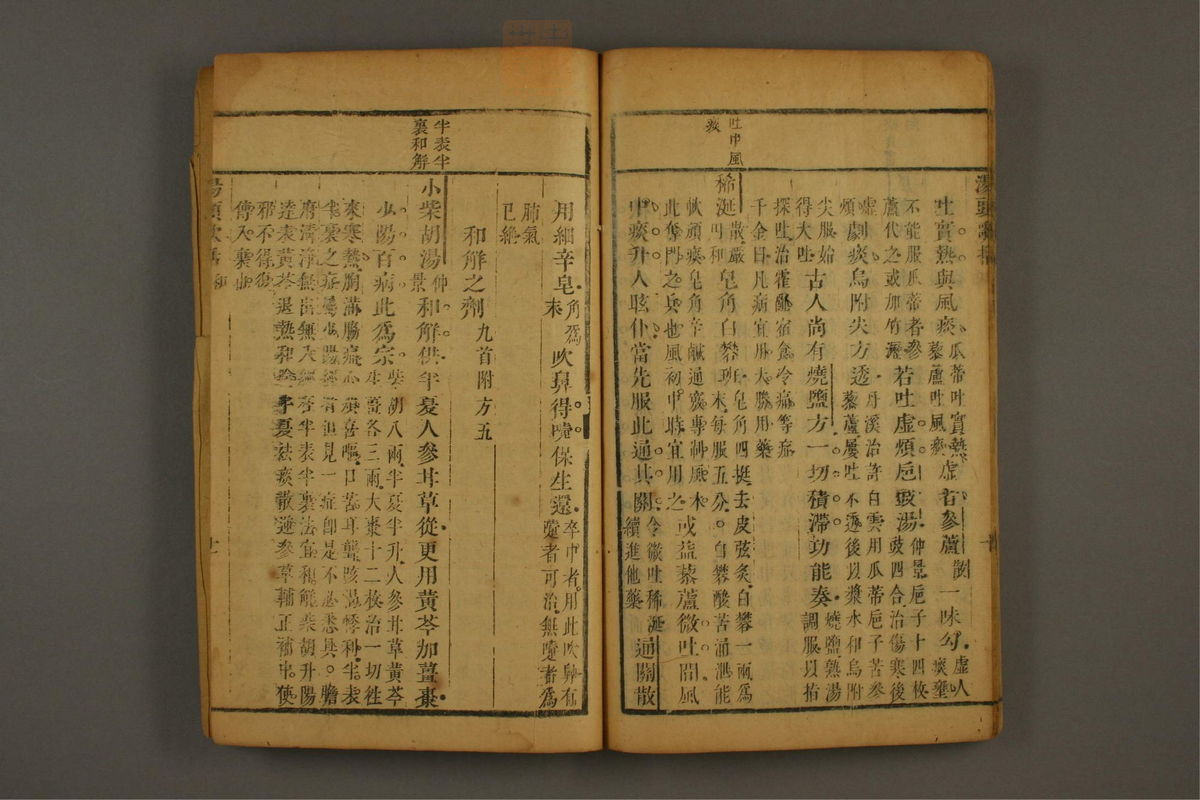 湯頭歌括
吐實熱與風痰
瓜蒂吐實熱
藜蘆吐風痰
虛者參蘆散一味勾
虛人
痰壅
不能服瓜蒂者參
蘆代之或加竹瀝
若吐虛煩巵豉湯
仲景巵子十四枚
豉四合治傷寒後
虛
煩
劇痰烏附尖方透
丹溪治許白雲用瓜蒂巵子苦參
藜蘆屢吐不透後以漿水和烏附
尖服始
得大吐
古人尚有燒鹽方一切積滯功能奏
燒鹽熟湯
調服以指
探吐治霍亂宿食冷痛等症
千金曰凡病宜用大勝用藥
吐中風
痰
稀涎
散嚴
用和
皂角白礬班
皂角四挺去皮弦炙白礬一兩爲
末每服五分。白礬酸苦涌泄能
軟頑痰皂角辛鹹通竅專制風木
此奪門之兵也風初中時宜用之
或益藜蘆微吐間風
中痰升人眩仆當先服此通其關
令微吐稀涎
續進他藥
通關散
十
用細辛皂
角爲
末
吹鼻得嚏保生還
卒中者。用此吹鼻有
嚏者可治。無嚏者爲
肺氣
已絶
和解之劑
九首附方五
半表半
裏和解
小柴胡湯
仲
景
和解供半夏人參甘草從更用黃芩加薑棗
少陽百病此爲宗
柴胡八兩半夏半升人參甘草黃芩
生薑各三兩大棗十二枚治一切往
來寒熱胸滿脇痛心煩喜嘔口苦耳聾咳渴悸利半表
半裏之症屬少陽經者但見一症即是不必悉具。膽
府清淨無出無入經在半表半裏法宜和解柴胡升陽
達表黃芩退熱和陰半夏祛痰散逆參草輔正補中使
邪不得復
傳入裏也
湯頭歌括
和
十一